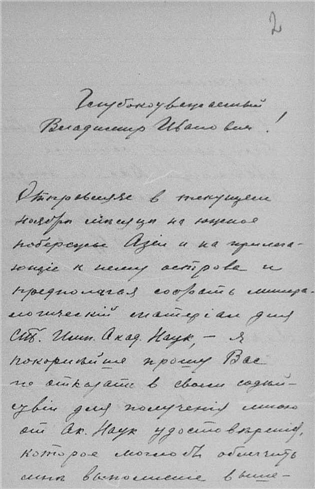 2
Глубокоуважаемый
Владимир Иванович!
Отправляясь в текущем
ноябре месяце на южное
побережье Азии и на прилега-
ющие к нему острова и
предполагая собрать минера-
логический материал для
Имп. Акад. Наук, – я
покорнейше прошу Вас
не отказать в своем содей-
ствіи для полученія мною
от Ак. Наук удостоверенія,
которое могло бъ облегчить
мне выполнение выше-